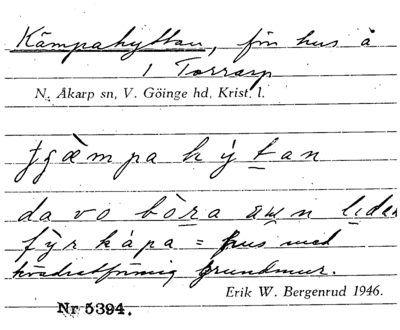 Kämpahyttan, fin hus å
1 Torrarp
N. Åkarp sn, V. Göinge hd, Krist. l.
da vo bòra
fýrkápa = hus med
kvadratformig grundmur.
Erik W. Bergenrud 1946.
Nr 5394.